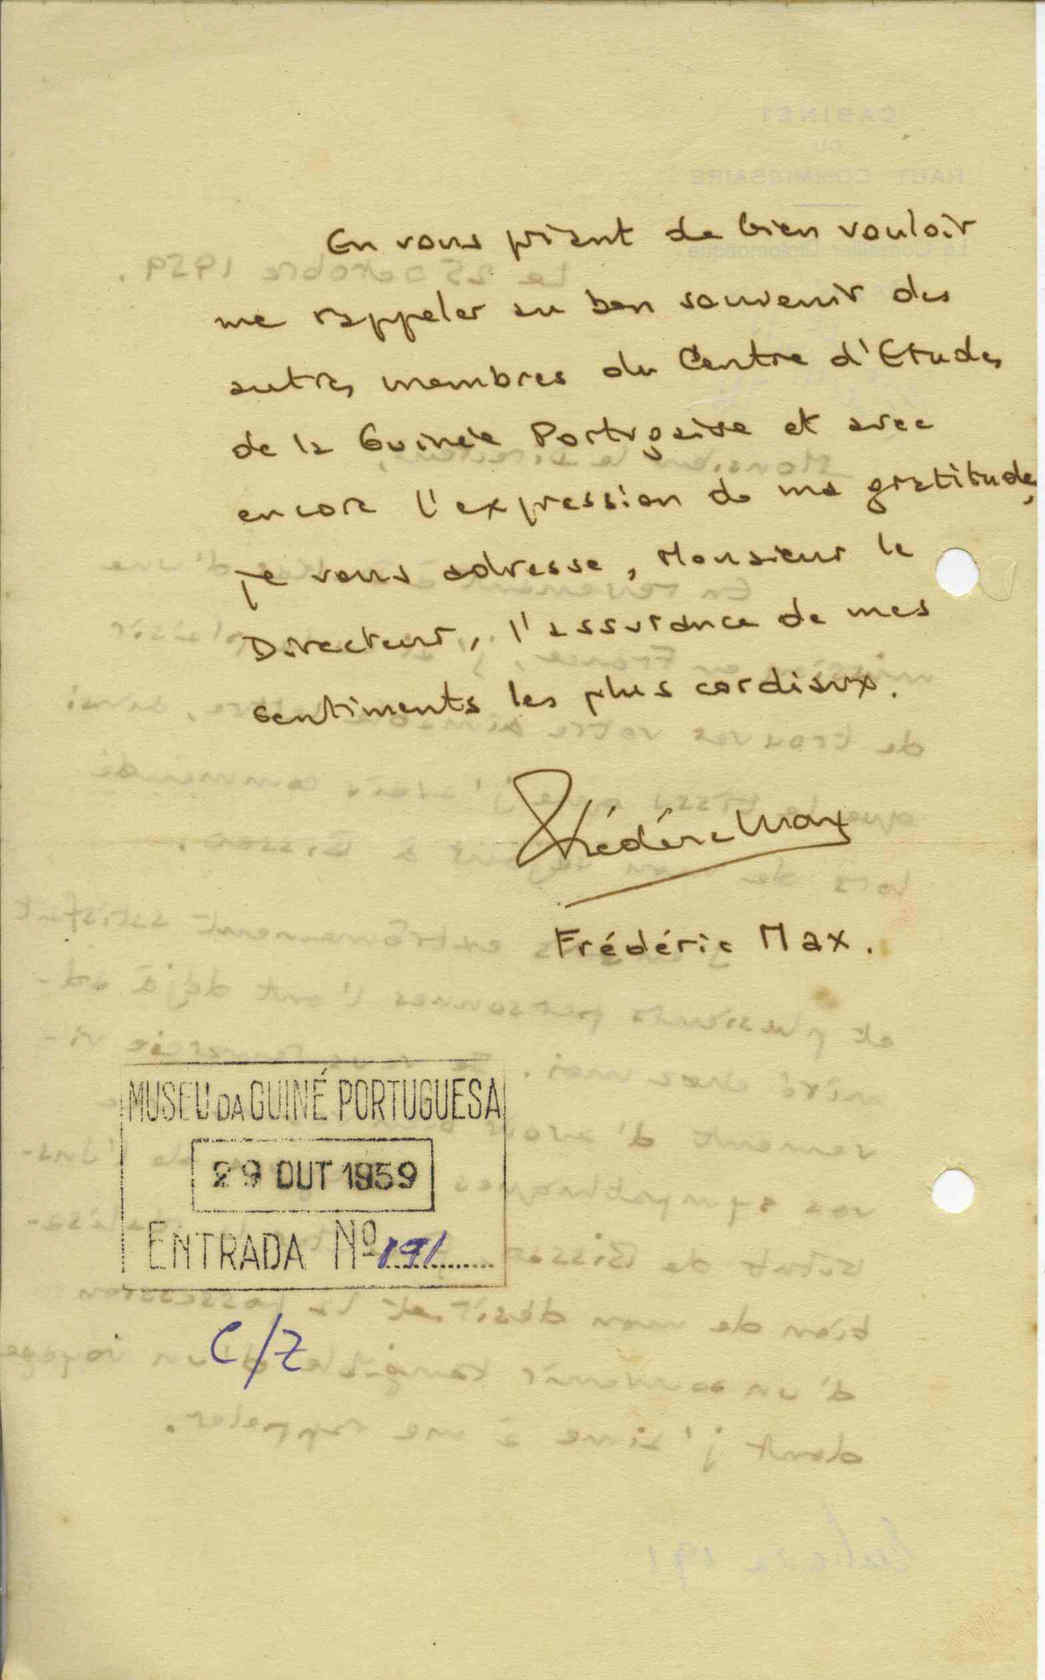 En vous priant de bien vouloir
me rappeler au bon souvenir des
autres membres du Centre d'Etudes
de la Guinée Portugaise et avec
encore l'expression de ma gratitude,
je vous adresse, Monsieur le
Directeur, l'assurance de mes
sentiments les plus cordiaux.
Frédéric Max
Frédéric Max.
MUSEU DA GUINÉ PORTUGUESA
29 OUT 1959
ENTRADA Nº 191
C/Z